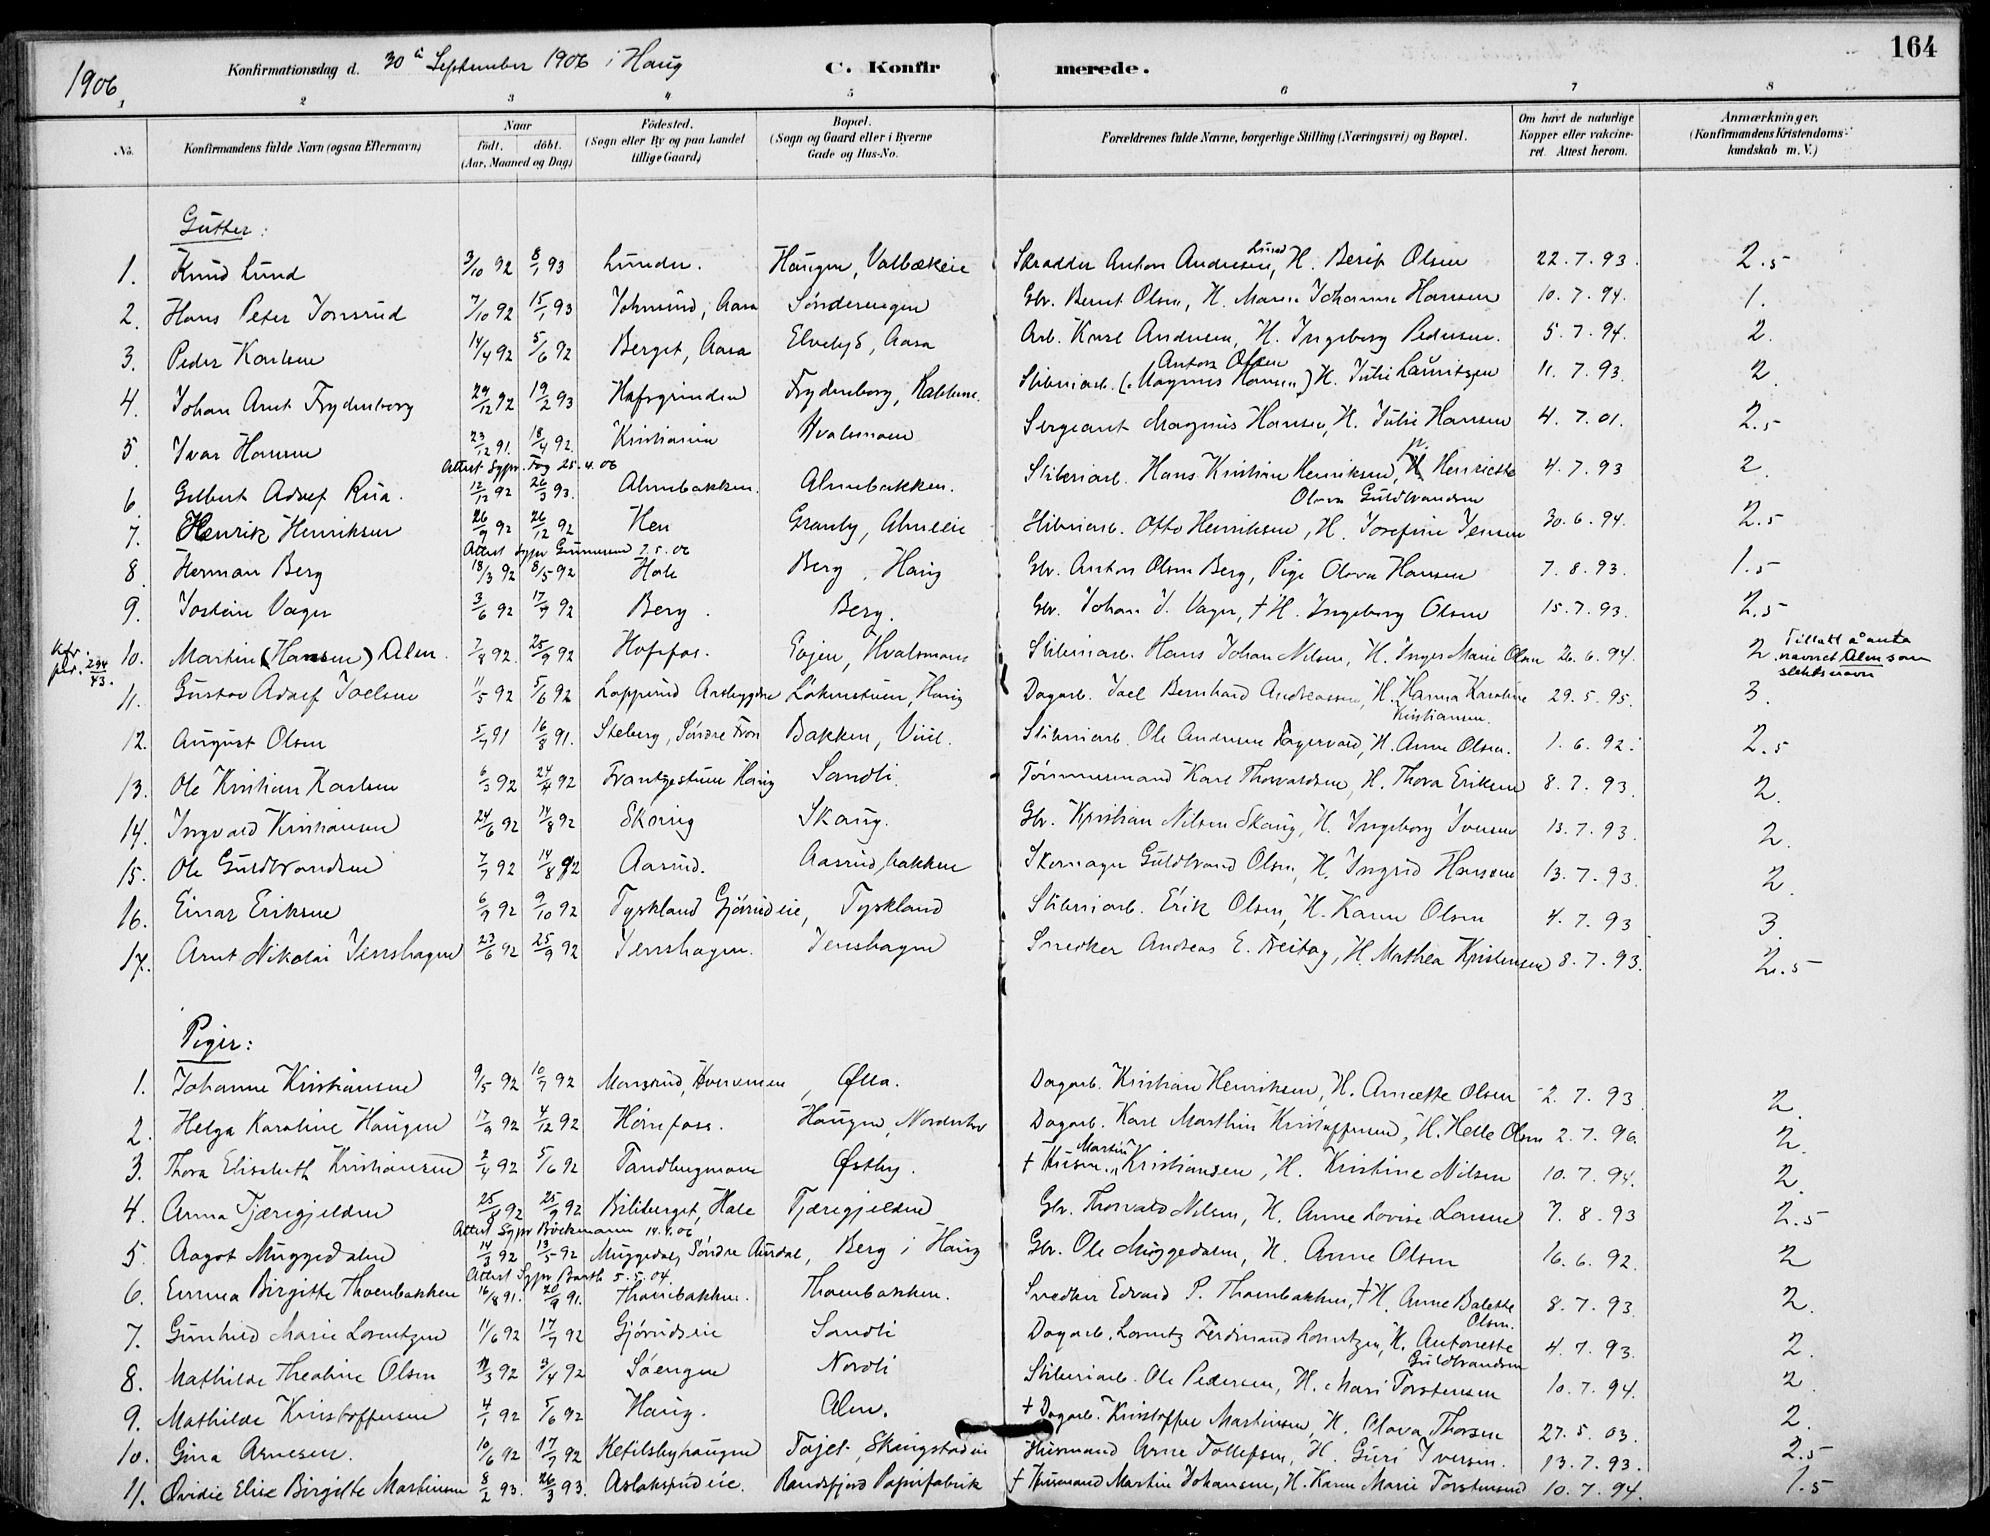 164
1906
Konfirmationsdag d. 30te September 1906 i Haug
C. Konfirmerede.
1 2 3 4 5 6 7 8
No.
Konfirmandens fulde Navn (ogsaa Efternavn)
Naar
født. døbt.
(Aar, Maaned og Dag)
Fødested.
(Sogn eller By og paa Landet
tillige Gaard)
Bopæl.
(Sogn og Gaard eller i Byerne
Gade og Hus-No.
Forældrenes fulde Navne, borgerlige Stilling (Næringsvei) og Bopæl.
Om havt de naturlige
Kopper eller vakcine-
ret. Attest herom.
Anmærkninger.
(Konfirmandens Kristendoms-
kundskab m. V.)
Gutter:
1. Knud Lund 3/10 92 8/1 93 Lunder. Haugen, Valbækeie Skrædder Anton Andersen Lund, H. Berit Olsen 22.7.93. 2.5
2. Hans Peter Jonsrud 7/10 92 15/1 93 Johnsrud, Aasa Sønderengen Gbr. Bernt Olsen, H. Maren Johanne Hansen 10.7.94. 1.
3. Peder Karlsen 14/4 92 5/6 92 Berget, Aasa Elvelyst, Aasa Arb. Karl Andersen, H. Ingeborg Pedersen. 5.7.94. 2.
4. Johan Arnt Frydenborg 29/12 92 19/2 93 Hafsgrinden Frydenborg, Sliberiarb. (Magnus Hansen) Anton Olsen H. Julie Lauritzen 11.7.93. 2.
5. Ivar Hansen 23/12 91. 18/4 92. Kristiania Hvalsmoen Sergeant Magnus Hansen, H. Julie Hansen 4.7.01. 2.5
Attest Sgpr. Fog 25.4.06
6. Gelbert Adolf Rua. 12/12 92 26/3 93. Almebakken. Almebakken. Sliberiarb. Hans Kristian Henriksen, H. Henriette Olava Guldbrandsen 4.7.93 2.
7. Henrik Henriksen 26/9 92 26/12 92 Hen Granly, Almeeie Sliberiarb. Otto Henriksen, H. Josefine Jensen 30.6.94. 2.5
Attest Sgpr Gunnerud 7.5.06
8. Herman Berg 18/3 92 8/5 92 Hole Berg, Haug Gbr. Anton Olsen Berg, Pige Olava Hansen 7.8.93. 1.5
9. Jostein Vager 3/6 92 17/7 92 Berg. Berg. Gbr. Johan J. Vager, † H. Ingeborg Olsen 15.7.93. 2.5
10. Martin (Hansen) Alm 7/8 92. 25/9 92 Hofsfos. Eojen, Hvalsmoen Sliberiarb. Hans Johan Nilsen, H. Inger Marie Olsen 26.6.94. 2. Tillatt å anta
navnet Alm som
slektsnavn
Kfr.
pkr. 294/43.
11. Gustav Adolf Joelsen 11/5 92 5/6 92 Loppesrud Aasbygden Løkenstuen, Haug Dagarb. Joel Bernhard Andreassen, H. Hanna Karoline Kristiansen. 29.5.95. 3.
12. August Olsen 5/7 91 16/8 91. Steberg, Søndre Fron Bakken, Viul. Sliberiarb. Ole Andersen Fagervold, H. Anne Olsen. 1.6.92. 2.5
13. Ole Kristian Karlsen 6/3 92 24/4 92 Frantzestuen Haug Sandli. Tømmermand Karl Thorvaldsen, H. Thora Eriksen 8.7.93. 2.
14. Ingvald Kristiansen 24/6 92 14/8 92 Skaug Skaug. Gbr. Kristian Nilsen Skaug, H. Ingeborg Iversen 13.7.93. 2.
15. Ole Guldbrandsen 7/7 92 14/8 92 Aasrud. Aasrudbakken Skomager Guldbrand Olsen, H. Ingrid Hansen 13.7.93. 2.
16. Einar Eriksen 6/9 92 9/10 92 Tyskland Gjørudeie, Tyskland Sliberiarb. Erik Olsen, H. Karen Olsen 4.7.93 3.
17. Arnt Nikolai Jenshagen 23/6 92 25/9 92 Jenshagen. Jenshagen Snedker Andreas E. Freitag, H. Mathea Kristensen 8.7.93. 2.5
Piger:
1. Johanne Kristiansen 9/5 92 10/7 92 Monsrud, Hvervenen, Ølla. Dagarb. Kristian Henriksen, H. Annette Olsen 2.7.93 2.
2. Helga Karoline Haugen 17/9 92 4/12 92 Hønefoss. Haugen, Norderhov Dagarb. Karl Marthin Kristoffersen, H. Helle Olsen 2.7.96. 2.
3. Thora Elisabeth Kristiansen 2/4 92 5/6 92 Tandbergmoen Østby. † Husm. Martin Kristiansen, H. Kristine Nilsen 10.7.94. 2.
4. Anna Tjæregjelden 25/8 92 25/9 92 Biliberget, Hole Tjæregjelden Gbr. Thorvald Nilsen, H. Anne Lovise Larsen 7.8.93 2.5
Attest Sgpr Böckmann 14.4.06
5. Aagot Muggedalen 14/3 92 13/5 92 Muggedal, Søndre Aurdal, Berg i Haug Gbr. Ole Muggedalen, H. Anne Olsen 16.6.92. 2
Attest Sgpr Barth 5.5.04.
6. Emma Birgitte Thoenbakken 16/8 91. 20/9 91. Thoenbakken. Thoenbakken. Snedker Edvard P. Thoenbakken, † H. Anne Bolette Olsen. 8.7.93. 2.
7. Gunhild Marie Lorentzen 11/6 92 17/7 92 Gjørudseie Sandli Dagarb. Lorentz Ferdinand Lorentzen, H. Antonette Guldbrandsen 4.7.93. 2.
8. Mathilde Theoline Olsen 11/3 92 3/4 92 Søengen Nordli Sliberiarb. Ole Pedersen, H. Mari Torstensen 10.7.94. 2.
9. Mathilde Kristoffersen 4/1 92 5/6 92 Haug. Alm. † Dagarb. Kristoffer Martinsen, H. Olava Thorsen 27.5.03. 2.
10. Gina Arnesen. 10/6 92 17/7 92 Ketilsbyhaugen Tajet, Skingstadeie Husmand Arne Tollefsen, H. Guri Iversen. 13.7.93. 2.5
11. Ovidie Elise Birgitte Martinsen 8/2 93. 26/3 93. Aslaksrudeie. Randsfjord Papirfabrik † Husmand Martin Johansen, H. Karen Marie Torstensen 10.7.94. 1.5